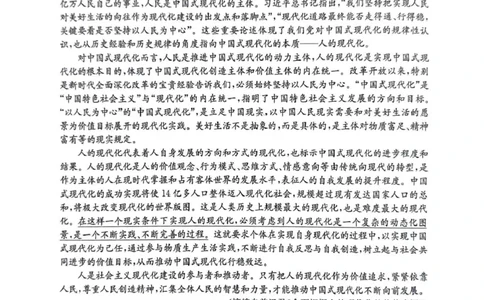 亿万人民自己的事业,人民是中国式现代化的主体。习近平总书记指出,“我们坚持把实现人民
对美好生活的向往作为现代化建设的出发点和落脚点”,“现代化道路最终能否走得通、行得稳,
关键要看是否坚持以人民为中心”。这些重要论述体现了我们党对中国式现代化的规律性认
识,也从历史经验和历史规律的角度指向中国式现代化的本质——人的现代化。
对中国式现代化而言,人民是推进中国式现代化的动力主体,人的现代化是实现中国式现
代化的根本目的,体现了中国式现代化创造主体和价值主体的内在统一。改革开放以来,特别
是新时代全面深化改革的宝贵经验告诉我们,必须始终坚持以人民为中心。“中国式现代化”是
“中国特色社会主义”与“现代化”的内在统一,指明了中国特色社会主义发展的方向和目标。
“以人民为中心”的“中国式现代化”,是立足中国现实,以中国人民现实需要和对美好生活的愿
景为价值目标展开的现代化实践。美好生活不是抽象的,而是具体的,是主体对物质富足、精神
富有等的现实规定。
人的现代化代表着人自身发展的方向和方式的现代化,也标示中国式现代化的进步程度和
结果。人的现代化是人的价值观念、行为模式、思维方式、情感意向等由传统向现代的转型,是
作为主体的人在现时代掌握和占有客体世界的发展水平,表征人的自我发展的提升程度。中国
式现代化的成功实现将使 14 亿多人口整体迈入现代化社会,规模超过现有发达国家人口的总
和,将极大改变现代化的世界版图。这是人类历史上规模最大的现代化,也是难度最大的现代
化。在这样一个现实条件下实现人的现代化,必须考虑到人的现代化是一个复杂的动态化图
景,是一个不断实践、不断完善的过程。这就要求个体在实现自身现代化的过程中,以实现中国
式现代化为己任,通过参与物质生产生活实践,不断进行自我反思与自我创造,树立起与社会共
同进步的价值目标,从而推动中国式现代化行稳致远。
人是社会主义现代化建设的参与者和推动者。只有把人的现代化作为价值追求,紧紧依靠
人民,尊重人民创造精神,汇集全体人民的智慧和力量,才能推动中国式现代化不断向前发展。